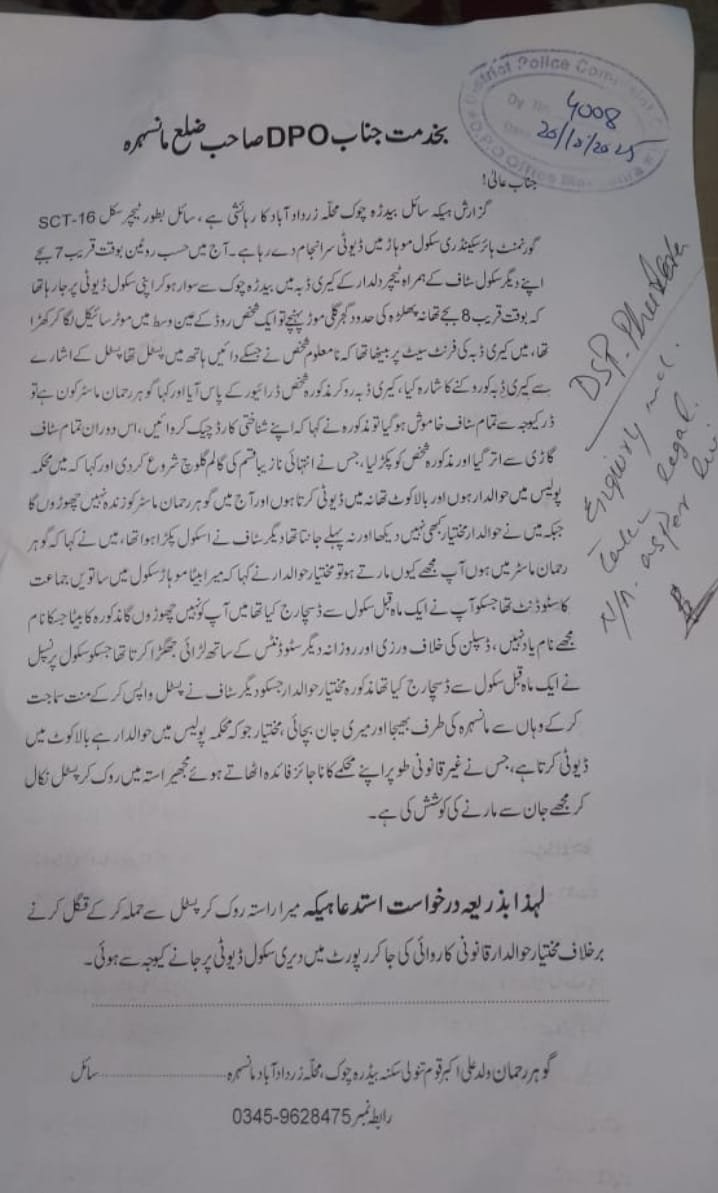 District Police Complaint
Dy No. 4008
Date 20/10/2025
DPO Office Mansehra
بخدمت جناب DPO صاحب ضلع مانسہرہ
جناب عالی!
گزارش ہیکہ سائل بیدڑہ چوک محلہ زرداد آباد کا رہائشی ہے، سائل بطور ٹیچر سکل SCT-16
گورنمنٹ ہائر سیکنڈری سکول موہاڑ میں ڈیوٹی سر انجام دے رہا ہے۔ آج میں حسب روٹین بوقت قریب 7 بجے
اپنے دیگر سکول سٹاف کے ہمراہ ٹیچر دلدار کے کیری ڈبہ میں بیدڑہ چوک سے سوار ہو کر اپنی سکول ڈیوٹی پر جا رہا تھا
کہ بوقت قریب 8 بجے تھانہ پھلڑہ کی حدود گجر گلی موڑ پہنچے تو ایک شخص روڈ کے عین وسط میں موٹر سائیکل لگا کر کھڑا
تھا، میں کیری ڈبہ کی فرنٹ سیٹ پر بیٹھا تھا کہ نامعلوم شخص نے جسکے دائیں ہاتھ میں پسٹل تھا پسٹل کے اشارے
سے کیری ڈبہ کو روکنے کا شارہ کیا، کیری ڈبہ روکر مذکورہ شخص ڈرائیور کے پاس آیا اور کہا گوہر رحمان ماسٹر کون ہے تو
ڈر کیوجہ سے تمام سٹاف خاموش ہو گیا تو مذکورہ نے کہا کہ اپنے شناختی کارڈ چیک کروائیں، اس دوران تمام سٹاف
گاڑی سے اتر گیا اور مذکورہ شخص کو پکڑ لیا، جس نے انتہائی نازیبا قسم کی گالم گلوچ شروع کر دی اور کہا کہ میں محکمہ
پولیس میں حوالدار ہوں اور بالاکوٹ تھانہ میں ڈیوٹی کرتا ہوں اور آج میں گوہر رحمان ماسٹر کو زندہ نہیں چھوڑوں گا
جبکہ میں نے حوالدار مختیار کبھی نہیں دیکھا اور نہ پہلے جانتا تھا دیگر سٹاف نے اسکول پکڑا ہوا تھا، میں نے کہا کہ گوہر
رحمان ماسٹر میں ہوں آپ مجھے کیوں مارتے ہو تو مختیار حوالدار نے کہا کہ میرا بیٹا موہاڑ سکول میں ساتویں جماعت
کا سٹوڈنٹ تھا جسکو آپ نے ایک ماہ قبل سکول سے ڈسچارج کیا تھا میں آپ کو نہیں چھوڑوں گا مذکورہ کا بیٹا جسکا نام
مجھے نام یاد نہیں، ڈسپلن کی خلاف ورزی اور روزانہ دیگر سٹوڈنٹس کے ساتھ لڑائی جھگڑا کرتا تھا جسکو سکول پرنسپل
نے ایک ماہ قبل سکول سے ڈسچارج کیا تھا مذکورہ مختیار حوالدار جسکو دیگر سٹاف نے پسٹل واپس کر کے منت سماجت
کر کے وہاں سے مانسہرہ کی طرف بھیجا اور میری جان بچائی، مختیار جو کہ محکمہ پولیس میں حوالدار ہے بالاکوٹ میں
ڈیوٹی کرتا ہے، جس نے غیر قانونی طو پر اپنے محکمے کا ناجائز فائدہ اٹھاتے ہوئے مجھے راستہ میں روک کر پسٹل نکال
کر مجھے جان سے مارنے کی کوشش کی ہے۔
لہذا بذریعہ درخواست استدعا ہیکہ میرا راستہ روک کر پسٹل سے حملہ کر کے قتل کرنے
برخلاف مختیار حوالدار قانونی کاروائی کی جا کر رپورٹ میں دیری سکول ڈیوٹی پر جانے کیوجہ سے ہوئی۔
گوہر رحمان ولد علی اکبر قوم تنولی سکنہ بیڈرہ چوک محلہ زرداد آباد مانسہرہ............سائل
رابطہ نمبر 0345-9628475
DSP. Phulra
Enquiry and
take legal
N/A. as per law